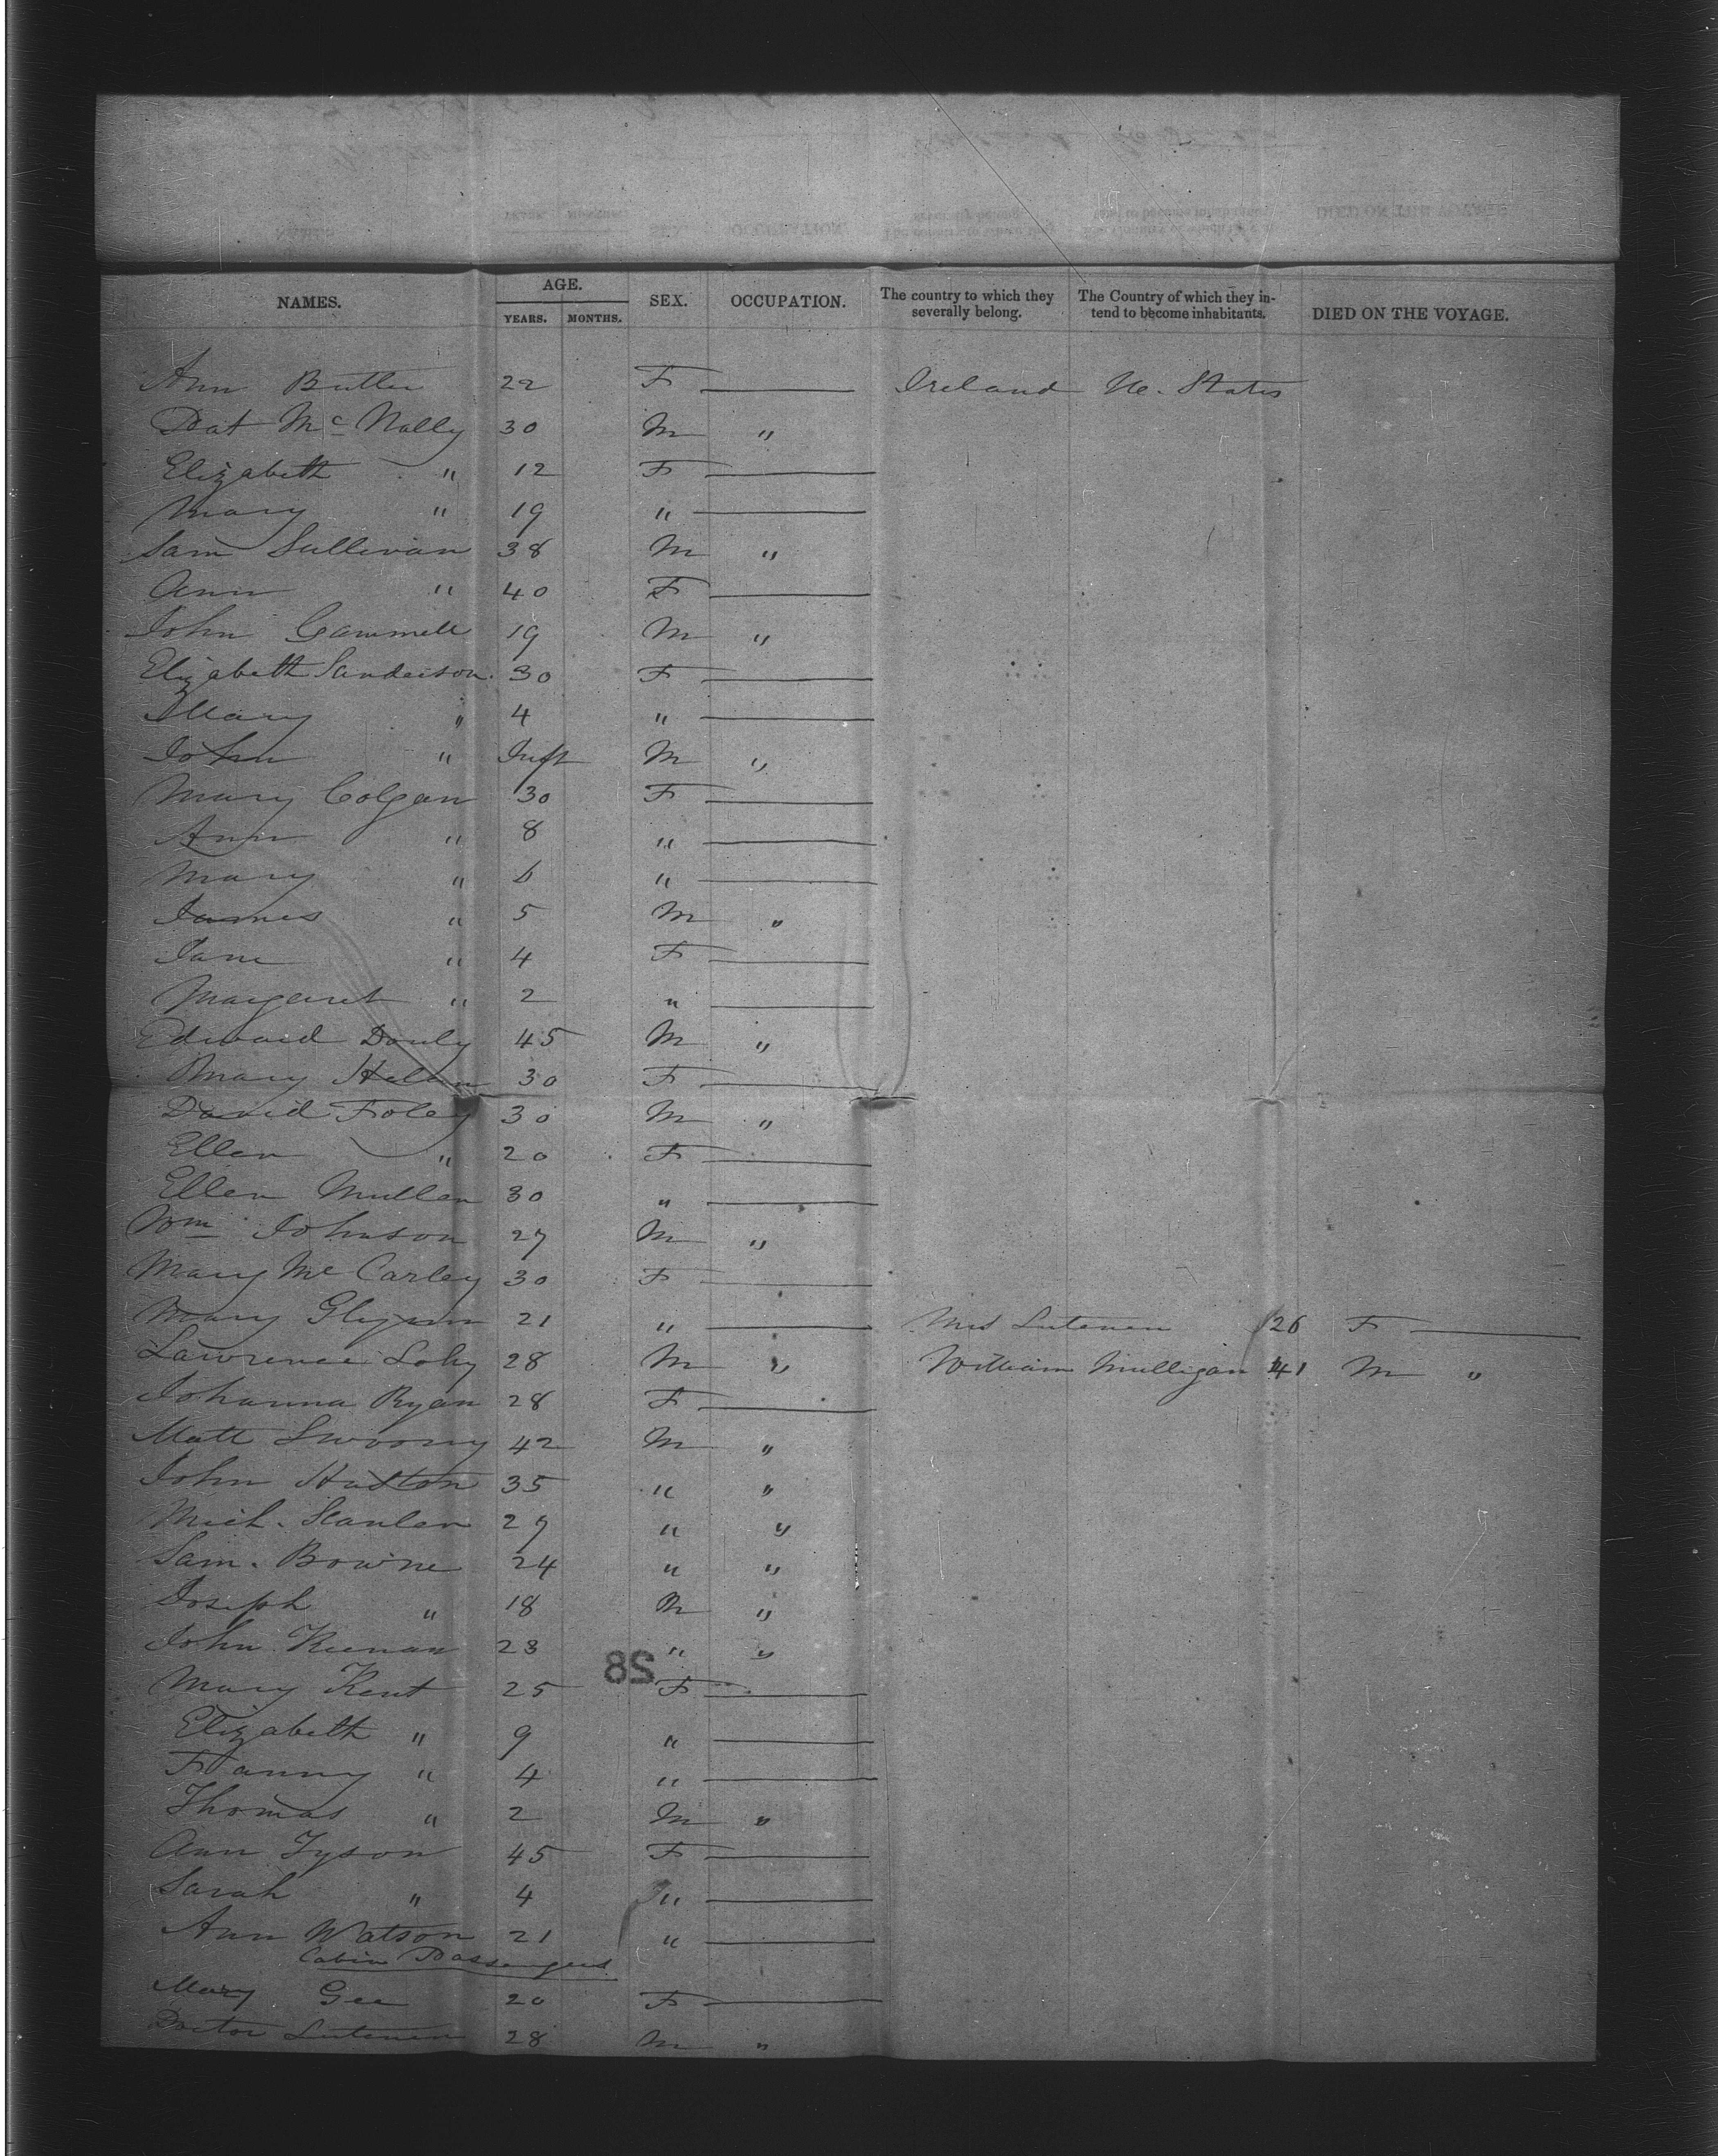 NAMES. AGE. SEX. OCCUPATION. The country to which they severally belong. The Country of which they intend to become inhabitants. DIED ON THE VOYAGE.
YEARS. MONTHS.
Ann Butler 22 F Ireland U. States
Pat McNally 30 M "
Elizabeth " 12 F
Mary " 19 "
Sam Sullivan 38 M "
Ann " 40 F
John Cammell 19 M "
Elizabeth Sanderson 30 F
Mary " 4 "
John " Inft M "
Mary Colgan 30 F
Ann " 8 "
Mary " 6 "
James " 5 M "
Jane " 4 F
Margaret " 2 "
Edward Douly 45 M "
Mary 30 F
David Foley 30 M "
Ellen " 20 F
Ellen Mullen 30 "
Wm Johnson 27 M "
Mary McCarley 30 F
Mary Glynn 21 " Mrs 26 F
Lawrence 28 M " William Mulligan 41 M "
Johanna Ryan 28 F
Matt 42 M "
John Hutton 35 " "
Mich. Scanlan 29 " "
Sam. Bowne 24 " "
Joseph " 18 M "
John Keenan 23 " "
28
Mary Kent 25 F
Elizabeth " 9 "
Fanny " 4 "
Thomas " 2 M "
Ann Tyson 45 F
Sarah " 4 "
Ann Watson 21 "
Cabin Passengers
Mary Gee 20 F
Doctor 28 M "